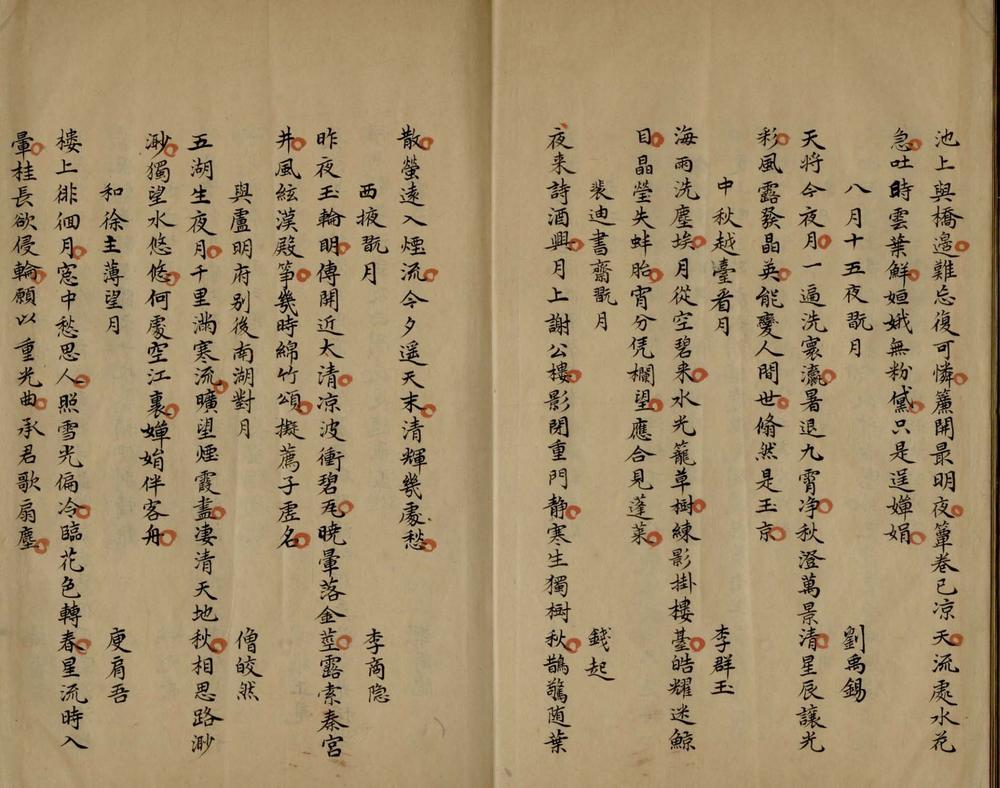 池上與橋邊難忘復可憐簾開最明夜簟卷已凉天流處水花
急吐時雲葉鮮姮娥無粉黛只是逞嬋娟
八月十五夜翫月　劉禹錫
天將今夜月一遍洗寰瀛暑退九霄净秋澄萬景清星辰讓光
彩風露發晶英能變人間世翛然是玉京
中秋越臺看月　李群玉
海雨洗塵埃月從空碧来水光籠草樹練影掛樓臺皓耀迷鯨
目晶瑩失蚌胎宵分凭欄望應合見蓬萊
裴迪書齋翫月　錢起
夜来詩酒興月上謝公樓影閉重門静寒生獨樹秋鵲驚随葉
散螢遠入煙流今夕遥天末清輝幾處愁
西掖翫月　李商隐
昨夜玉輪明傳聞近太清凉波衝碧瓦曉暈落金莖露索秦宮
井風絃漢殿箏幾時綿竹頌擬薦子虛名
與盧明府别後南湖對月　僧皎然
五湖生夜月千里滿寒流曠望煙霞盡凄清天地秋相思路渺
渺獨望水悠悠何處空江裏嬋娟伴客舟
和徐主薄望月　庾肩吾
樓上徘徊月窓中愁思人照雪光偏冷臨花色轉春星流時入
暈桂長欲侵輪願以重光曲承君歌扇塵